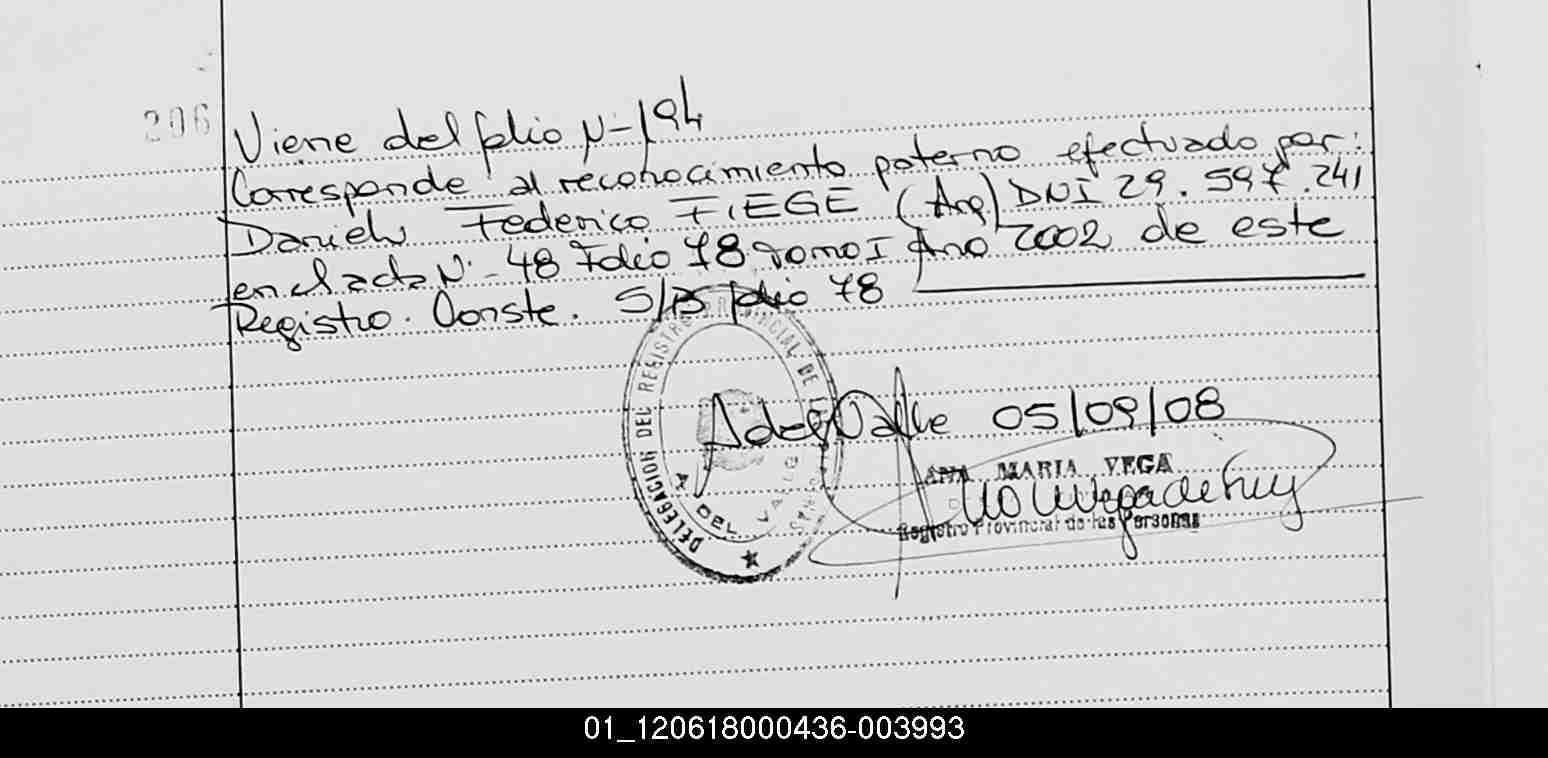 206
Viene del folio Nº 194
Corresponde al reconocimiento paterno efectuado por:
Daniel Federico FIEGE (Arg) DNI 29.597.241
en el acta Nº 48 Folio 78 Tomo I Año 2002 de este
Registro. Conste. S/B folio 78
DELEGACION DEL REGISTRO PROVINCIAL DE LAS PERSONAS
A. DEL VALLE
A del Valle 05/09/08
ANA MARIA VEGA
Registro Provincial de las Personas
01_120618000436-003993